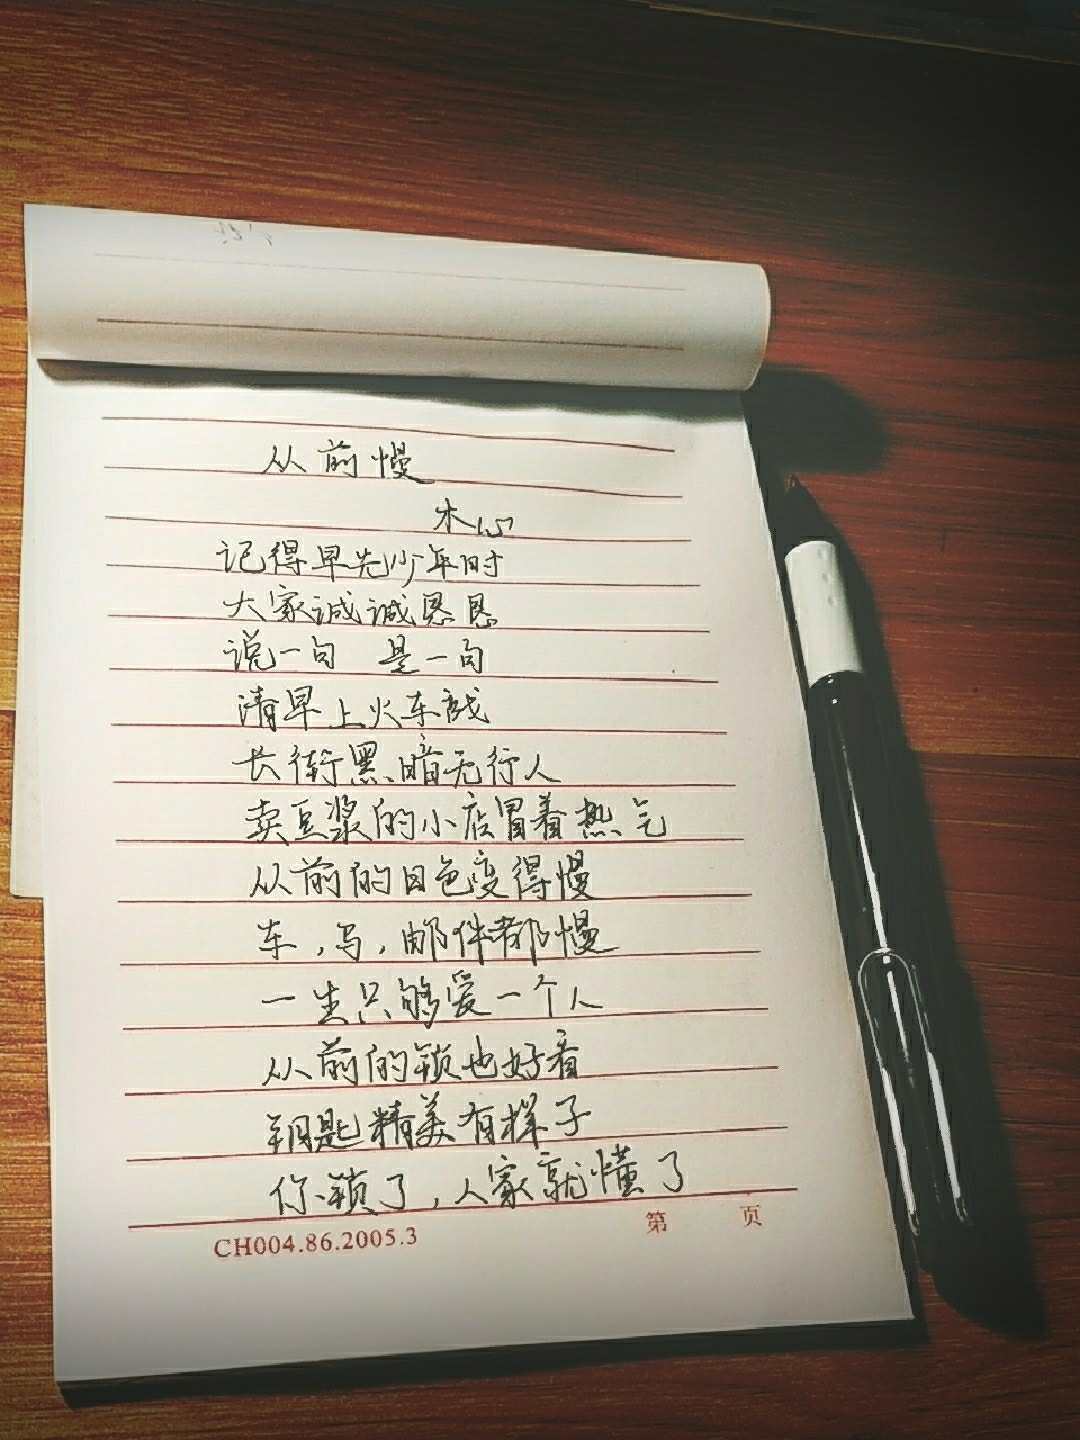 从前慢
木心
记得早先少年时
大家诚诚恳恳
说一句 是一句
清早上火车站
长街黑暗无行人
卖豆浆的小店冒着热气
从前的日色变得慢
车,马,邮件都慢
一生只够爱一个人
从前的锁也好看
钥匙精美有样子
你锁了,人家就懂了
CH004.86.2005.3
第 页